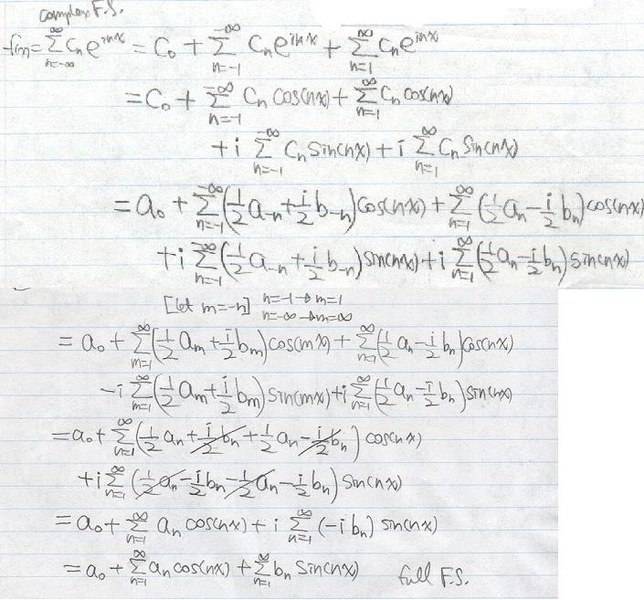 complex F.S.
f(x)= ∑_{n=-∞}^{∞} c_n e^{inx} = c_0 + ∑_{n=-1}^{-∞} c_n e^{inx} + ∑_{n=1}^{∞} c_n e^{inx}
= c_0 + ∑_{n=-1}^{-∞} c_n cos(nx) + ∑_{n=1}^{∞} c_n cos(nx)
+ i ∑_{n=-1}^{-∞} c_n sin(nx) + i ∑_{n=1}^{∞} c_n sin(nx)
= a_0 + ∑_{n=-1}^{-∞} (1/2 a_{-n} + i/2 b_{-n}) cos(nx) + ∑_{n=1}^{∞} (1/2 a_n - i/2 b_n) cos(nx)
+ i ∑_{n=-1}^{-∞} (1/2 a_{-n} + i/2 b_{-n}) sin(nx) + i ∑_{n=1}^{∞} (1/2 a_n - i/2 b_n) sin(nx)
[let m=-n] n=-1 → m=1
n=-∞ → m=∞
= a_0 + ∑_{m=1}^{∞} (1/2 a_m + i/2 b_m) cos(mx) + ∑_{n=1}^{∞} (1/2 a_n - i/2 b_n) cos(nx)
- i ∑_{m=1}^{∞} (1/2 a_m + i/2 b_m) sin(mx) + i ∑_{n=1}^{∞} (1/2 a_n - i/2 b_n) sin(nx)
= a_0 + ∑_{n=1}^{∞} (1/2 a_n + i/2 b_n + 1/2 a_n - i/2 b_n) cos(nx)
+ i ∑_{n=1}^{∞} (1/2 a_n - i/2 b_n - 1/2 a_n - i/2 b_n) sin(nx)
= a_0 + ∑_{n=1}^{∞} a_n cos(nx) + i ∑_{n=1}^{∞} (-i b_n) sin(nx)
= a_0 + ∑_{n=1}^{∞} a_n cos(nx) + ∑_{n=1}^{∞} b_n sin(nx) full F.S.